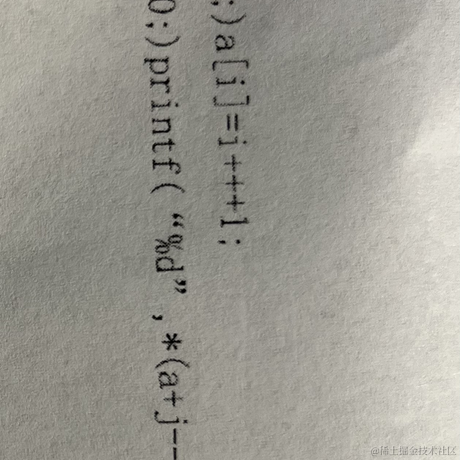 ;)a[i]=i+++1;
0;)printf(“%d”,*(a+j--
@稀土掘金技术社区